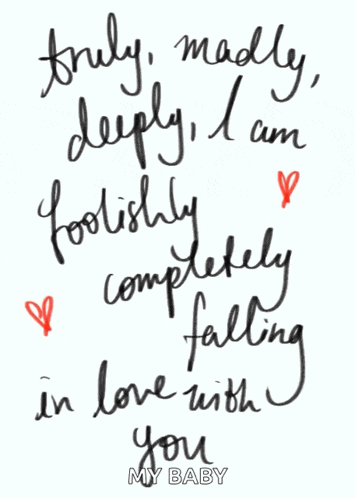 truly, madly,
deeply, I am
foolishly
completely
falling
in love with
you
MY BABY